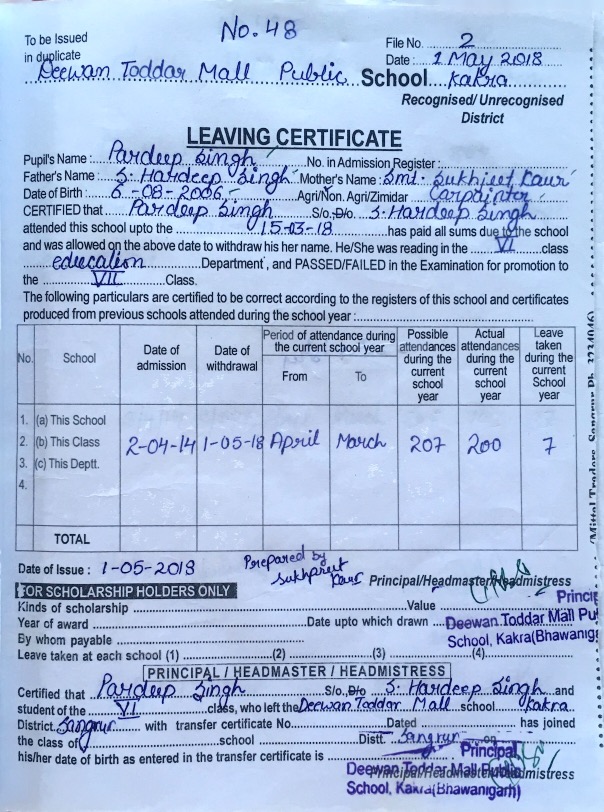 To be Issued
in duplicate
No. 48
File No. 2
Date: 1 May 2018
Deewan Toddar Mall Public School Kakra
Recognised/ Unrecognised
District
LEAVING CERTIFICATE
Pupil's Name: Pardeep Singh No. in Admission Register:
Father's Name: S. Hardeep Singh Mother's Name: Smt. Sukhjeet Kaur
Date of Birth: 6-08-2006 Agri/Non. Agri/Zimidar Carpainter
CERTIFIED that Pardeep Singh S/o, D/o. S. Hardeep Singh
attended this school upto the 15-03-18 has paid all sums due to the school
and was allowed on the above date to withdraw his her name. He/She was reading in the VI class
education Department, and PASSED/FAILED in the Examination for promotion to
the VII Class.
The following particulars are certified to be correct according to the registers of this school and certificates
produced from previous schools attended during the school year:
No. School Date of admission Date of withdrawal Period of attendance during the current school year From To Possible attendances during the current school year Actual attendances during the current school year Leave taken during the current School year
1. (a) This School
2. (b) This Class 2-04-14 1-05-18 April March 207 200 7
3. (c) This Deptt.
4.
TOTAL
(Mittal Traders, Sangrur Ph.
Date of Issue: 1-05-2018 Prepared by Sukhpreet Kaur Principal/Headmaster/Headmistress
FOR SCHOLARSHIP HOLDERS ONLY
Kinds of scholarship Value Princip
Year of award Date upto which drawn Deewan Toddar Mall Pu
By whom payable School, Kakra(Bhawanig
Leave taken at each school (1) (2) (3) (4)
PRINCIPAL / HEADMASTER / HEADMISTRESS
Certified that Pardeep Singh S/o, D/o S. Hardeep Singh and
student of the VI class, who left the Deewan Toddar Mall school Kakra
District Sangrur with transfer certificate No. Dated has joined
the class of school Distt. Sangrur on
his/her date of birth as entered in the transfer certificate is Principal
Deewan Toddar Mall Public
Principal/Headmaster/Headmistress
School, Kakra(Bhawanigarh)